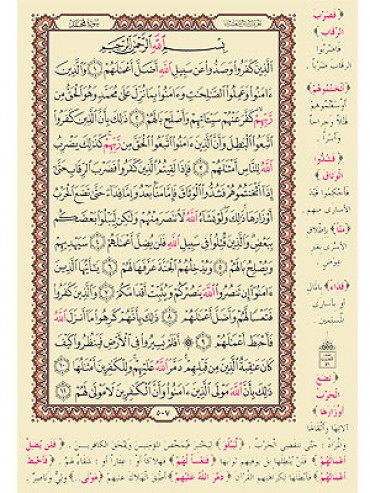 سورة محمد
بِسْمِ اللَّهِ الرَّحْمَٰنِ الرَّحِيمِ
الَّذِينَ كَفَرُوا وَصَدُّوا عَن سَبِيلِ اللَّهِ أَضَلَّ أَعْمَٰلَهُمْ ١ وَالَّذِينَ
ءَامَنُوا وَعَمِلُوا الصَّٰلِحَٰتِ وَءَامَنُوا بِمَا نُزِّلَ عَلَىٰ مُحَمَّدٍ وَهُوَ الْحَقُّ مِن
رَّبِّهِمْ كَفَّرَ عَنْهُمْ سَيِّـَٔاتِهِمْ وَأَصْلَحَ بَالَهُمْ ٢ ذَٰلِكَ بِأَنَّ الَّذِينَ كَفَرُوا
اتَّبَعُوا الْبَٰطِلَ وَأَنَّ الَّذِينَ ءَامَنُوا اتَّبَعُوا الْحَقَّ مِن رَّبِّهِمْ كَذَٰلِكَ يَضْرِبُ
اللَّهُ لِلنَّاسِ أَمْثَٰلَهُمْ ٣ فَإِذَا لَقِيتُمُ الَّذِينَ كَفَرُوا فَضَرْبَ الرِّقَابِ حَتَّىٰ
إِذَا أَثْخَنتُمُوهُمْ فَشُدُّوا الْوَثَاقَ فَإِمَّا مَنًّا بَعْدُ وَإِمَّا فِدَاءً حَتَّىٰ تَضَعَ الْحَرْبُ
أَوْزَارَهَا ذَٰلِكَ وَلَوْ يَشَاءُ اللَّهُ لَانتَصَرَ مِنْهُمْ وَلَٰكِن لِّيَبْلُوَا بَعْضَكُم
بِبَعْضٍ وَالَّذِينَ قُتِلُوا فِي سَبِيلِ اللَّهِ فَلَن يُضِلَّ أَعْمَٰلَهُمْ ٤ سَيَهْدِيهِمْ
وَيُصْلِحُ بَالَهُمْ ٥ وَيُدْخِلُهُمُ الْجَنَّةَ عَرَّفَهَا لَهُمْ ٦ يَٰأَيُّهَا الَّذِينَ
ءَامَنُوا إِن تَنصُرُوا اللَّهَ يَنصُرْكُمْ وَيُثَبِّتْ أَقْدَامَكُمْ ٧ وَالَّذِينَ كَفَرُوا
فَتَعْسًا لَّهُمْ وَأَضَلَّ أَعْمَٰلَهُمْ ٨ ذَٰلِكَ بِأَنَّهُمْ كَرِهُوا مَا أَنزَلَ اللَّهُ
فَأَحْبَطَ أَعْمَٰلَهُمْ ٩ أَفَلَمْ يَسِيرُوا فِي الْأَرْضِ فَيَنظُرُوا كَيْفَ
كَانَ عَٰقِبَةُ الَّذِينَ مِن قَبْلِهِمْ دَمَّرَ اللَّهُ عَلَيْهِمْ وَلِلْكَٰفِرِينَ أَمْثَٰلُهَا ١٠
ذَٰلِكَ بِأَنَّ اللَّهَ مَوْلَى الَّذِينَ ءَامَنُوا وَأَنَّ الْكَٰفِرِينَ لَا مَوْلَىٰ لَهُمْ ١١
٥٠٧
فَضَرْبَ
الرِّقَابِ
فاضربوا
الرقاب ضرباً.
أَثْخَنتُمُوهُمْ
أوسعتموهم
قتلاً وجراحاً
وأسراً.
فَشُدُّوا
الْوَثَاقَ
فأحكموا قيد
الأسارى منهم.
مَنّاً بإطلاق
الأسرى بغير
عوض.
فِدَاءً بالمال
أو بأسارى
المسلمين.
تَضَعَ
الْحَرْبُ
أَوْزَارَهَا
آلاتها وأثقالها
والمراد: حتى تنقضي الحرب. لِّيَبْلُوَا ليختبر فيمحّص المؤمنين ويمحق الكافرين. فَلَن يُضِلَّ
أَعْمَٰلَهُمْ فلن يبطلها بل يوفيهم ثوابها. فَتَعْساً لَّهُمْ فهلاكاً أو: عثاراً أو: شقاء لهم. فَأَحْبَطَ
أَعْمَٰلَهُمْ فأبطلها لكراهتهم القرآن. دَمَّرَ اللَّهُ عَلَيْهِمْ أطبق الهلاك عليهم. مَوْلَى وليّ وناصر.